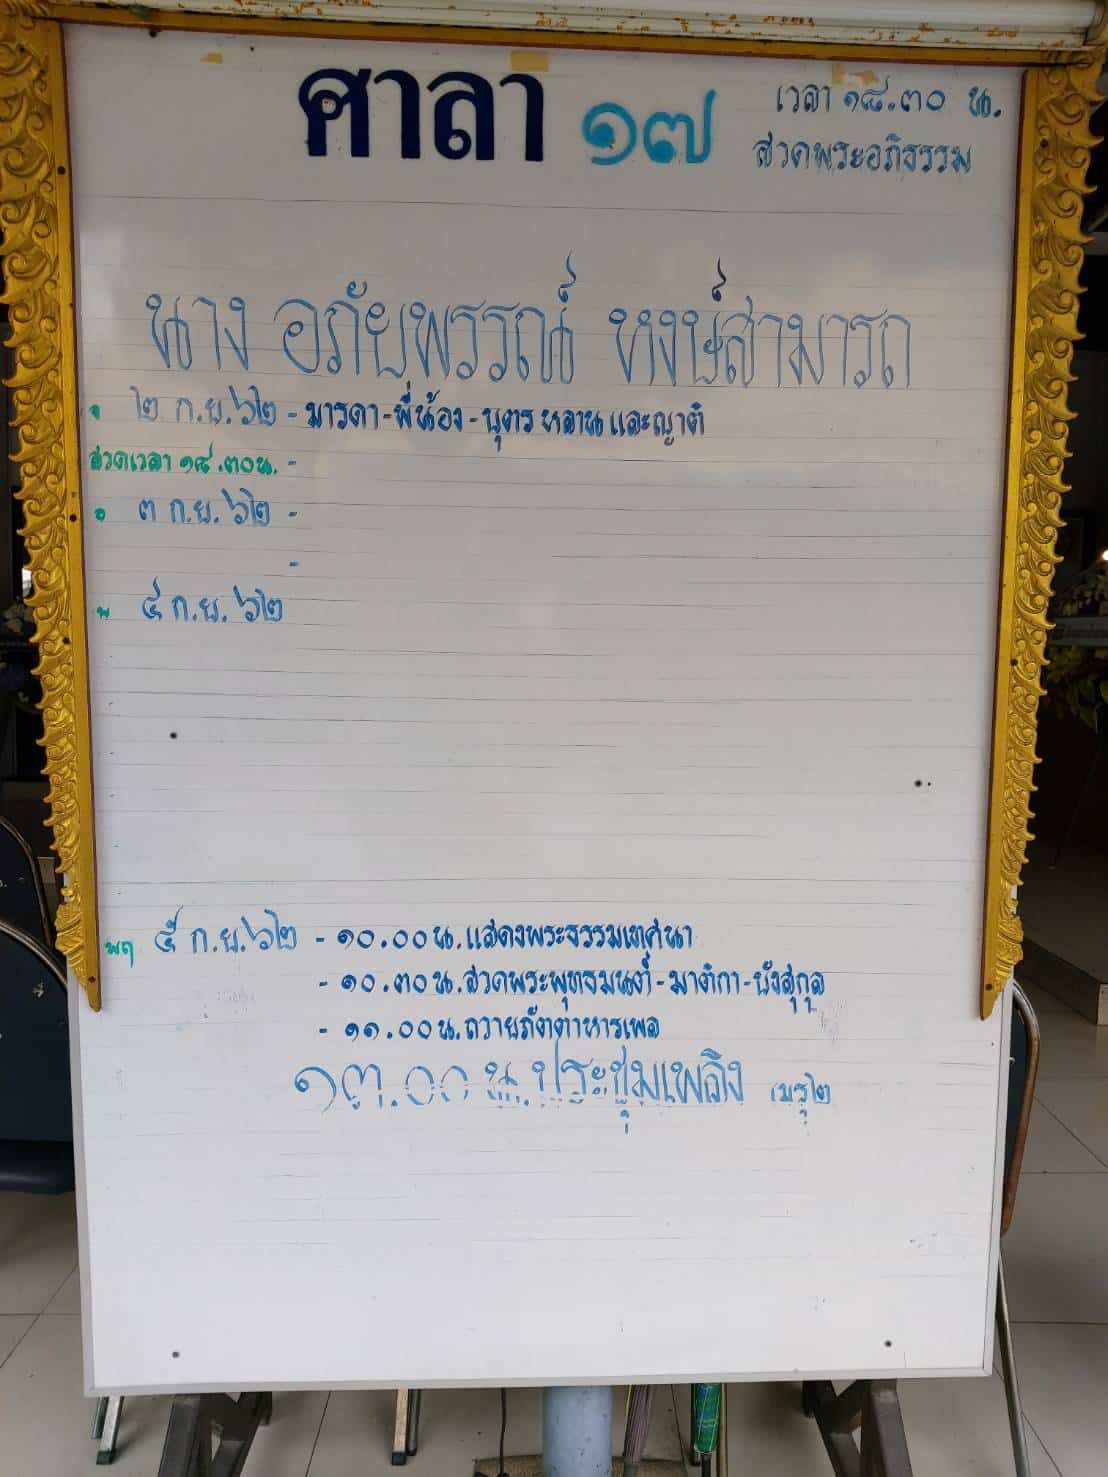 ศาลา ๑๗
เวลา ๑๘.๓๐ น.
สวดพระอภิธรรม
นาง อภัยพรรณ์ หงษ์สามารถ
จ ๒ ก.ย. ๖๒ - มารดา - พี่น้อง - บุตร หลาน และญาติ
สวดเวลา ๑๘.๓๐น. -
อ ๓ ก.ย. ๖๒ -
-
พ ๔ ก.ย. ๖๒
พฤ ๕ ก.ย. ๖๒ - ๑๐.๐๐น. แสดงพระธรรมเทศนา
- ๑๐.๓๐น. สวดพระพุทธมนต์ - มาติกา - บังสุกุล
- ๑๑.๐๐น. ถวายภัตตาหารเพล
๑๓.๐๐ น. ประชุมเพลิง เมรุ ๒